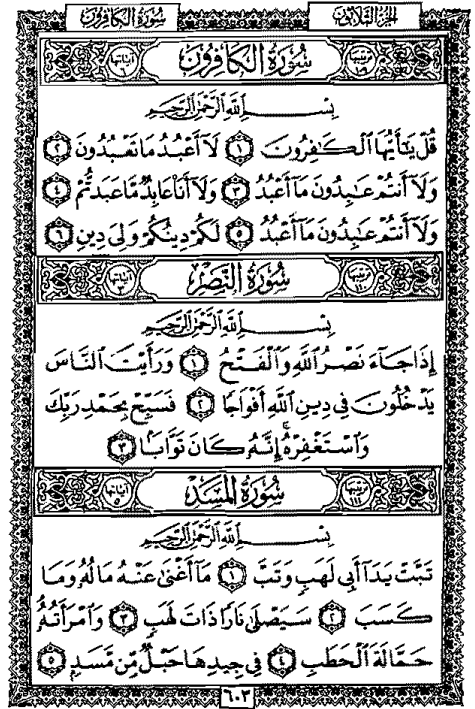 سُورَةُ الكَافِرُونَ الجُزْءُ الثَّلَاثُونَ
سُورَةُ الكَافِرُونَ
بِسْمِ اللَّهِ الرَّحْمَٰنِ الرَّحِيمِ
قُلْ يَٰٓأَيُّهَا ٱلْكَٰفِرُونَ ١ لَآ أَعْبُدُ مَا تَعْبُدُونَ ٢
وَلَآ أَنتُمْ عَٰبِدُونَ مَآ أَعْبُدُ ٣ وَلَآ أَنَا۠ عَابِدٌ مَّا عَبَدتُّمْ ٤
وَلَآ أَنتُمْ عَٰبِدُونَ مَآ أَعْبُدُ ٥ لَكُمْ دِينُكُمْ وَلِيَ دِينِ ٦
سُورَةُ النَّصْرِ
بِسْمِ اللَّهِ الرَّحْمَٰنِ الرَّحِيمِ
إِذَا جَآءَ نَصْرُ ٱللَّهِ وَٱلْفَتْحُ ١ وَرَأَيْتَ ٱلنَّاسَ
يَدْخُلُونَ فِي دِينِ ٱللَّهِ أَفْوَاجًا ٢ فَسَبِّحْ بِحَمْدِ رَبِّكَ
وَٱسْتَغْفِرْهُ ۚ إِنَّهُۥ كَانَ تَوَّابًۢا ٣
سُورَةُ المَسَدِ
بِسْمِ اللَّهِ الرَّحْمَٰنِ الرَّحِيمِ
تَبَّتْ يَدَآ أَبِي لَهَبٍ وَتَبَّ ١ مَآ أَغْنَىٰ عَنْهُ مَالُهُۥ وَمَا
كَسَبَ ٢ سَيَصْلَىٰ نَارًا ذَاتَ لَهَبٍ ٣ وَٱمْرَأَتُهُۥ
حَمَّالَةَ ٱلْحَطَبِ ٤ فِي جِيدِهَا حَبْلٌ مِّن مَّسَدٍۭ ٥
٦٠٣